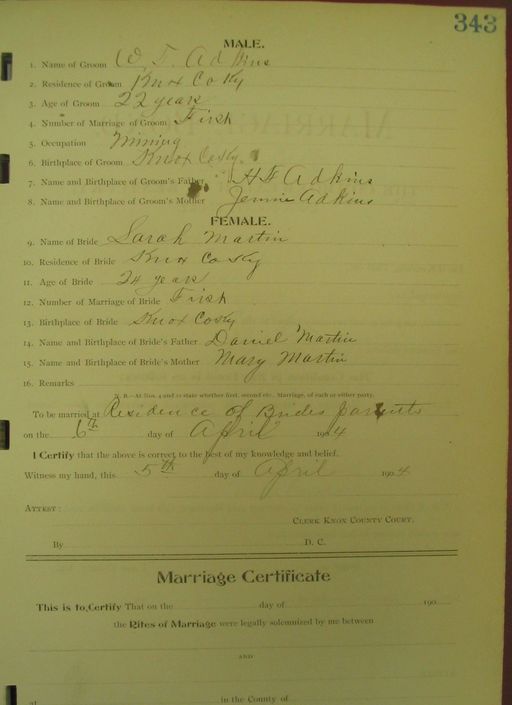 343
MALE.
1. Name of Groom W. T. Adkins
2. Residence of Groom Knox Co Ky
3. Age of Groom 22 years
4. Number of Marriage of Groom First
5. Occupation Mining
6. Birthplace of Groom Knox Co Ky
7. Name and Birthplace of Groom's Father H F Adkins
8. Name and Birthplace of Groom's Mother Jennie Adkins
FEMALE.
9. Name of Bride Sarah Martin
10. Residence of Bride Knox Co Ky
11. Age of Bride 24 years
12. Number of Marriage of Bride First
13. Birthplace of Bride Knox Co Ky
14. Name and Birthplace of Bride's Father Daniel Martin
15. Name and Birthplace of Bride's Mother Mary Martin
16. Remarks
N. B.—At Nos. 4 and 12 state whether first, second etc. Marriage, of each or either party.
To be married at Residence of Brides parents
on the 6th day of April 1904
I Certify that the above is correct to the best of my knowledge and belief.
Witness my hand, this 5th day of April 1904
ATTEST:
CLERK KNOX COUNTY COURT.
By D. C.
Marriage Certificate
This is to Certify That on the day of 190
the Rites of Marriage were legally solemnized by me between
AND
at in the County of